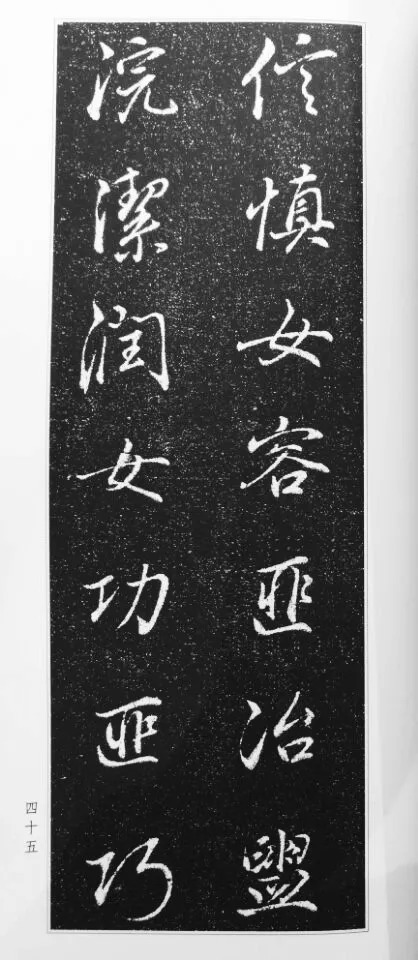 信慎女容匪冶盥
浣潔潤女功匪巧
四十五